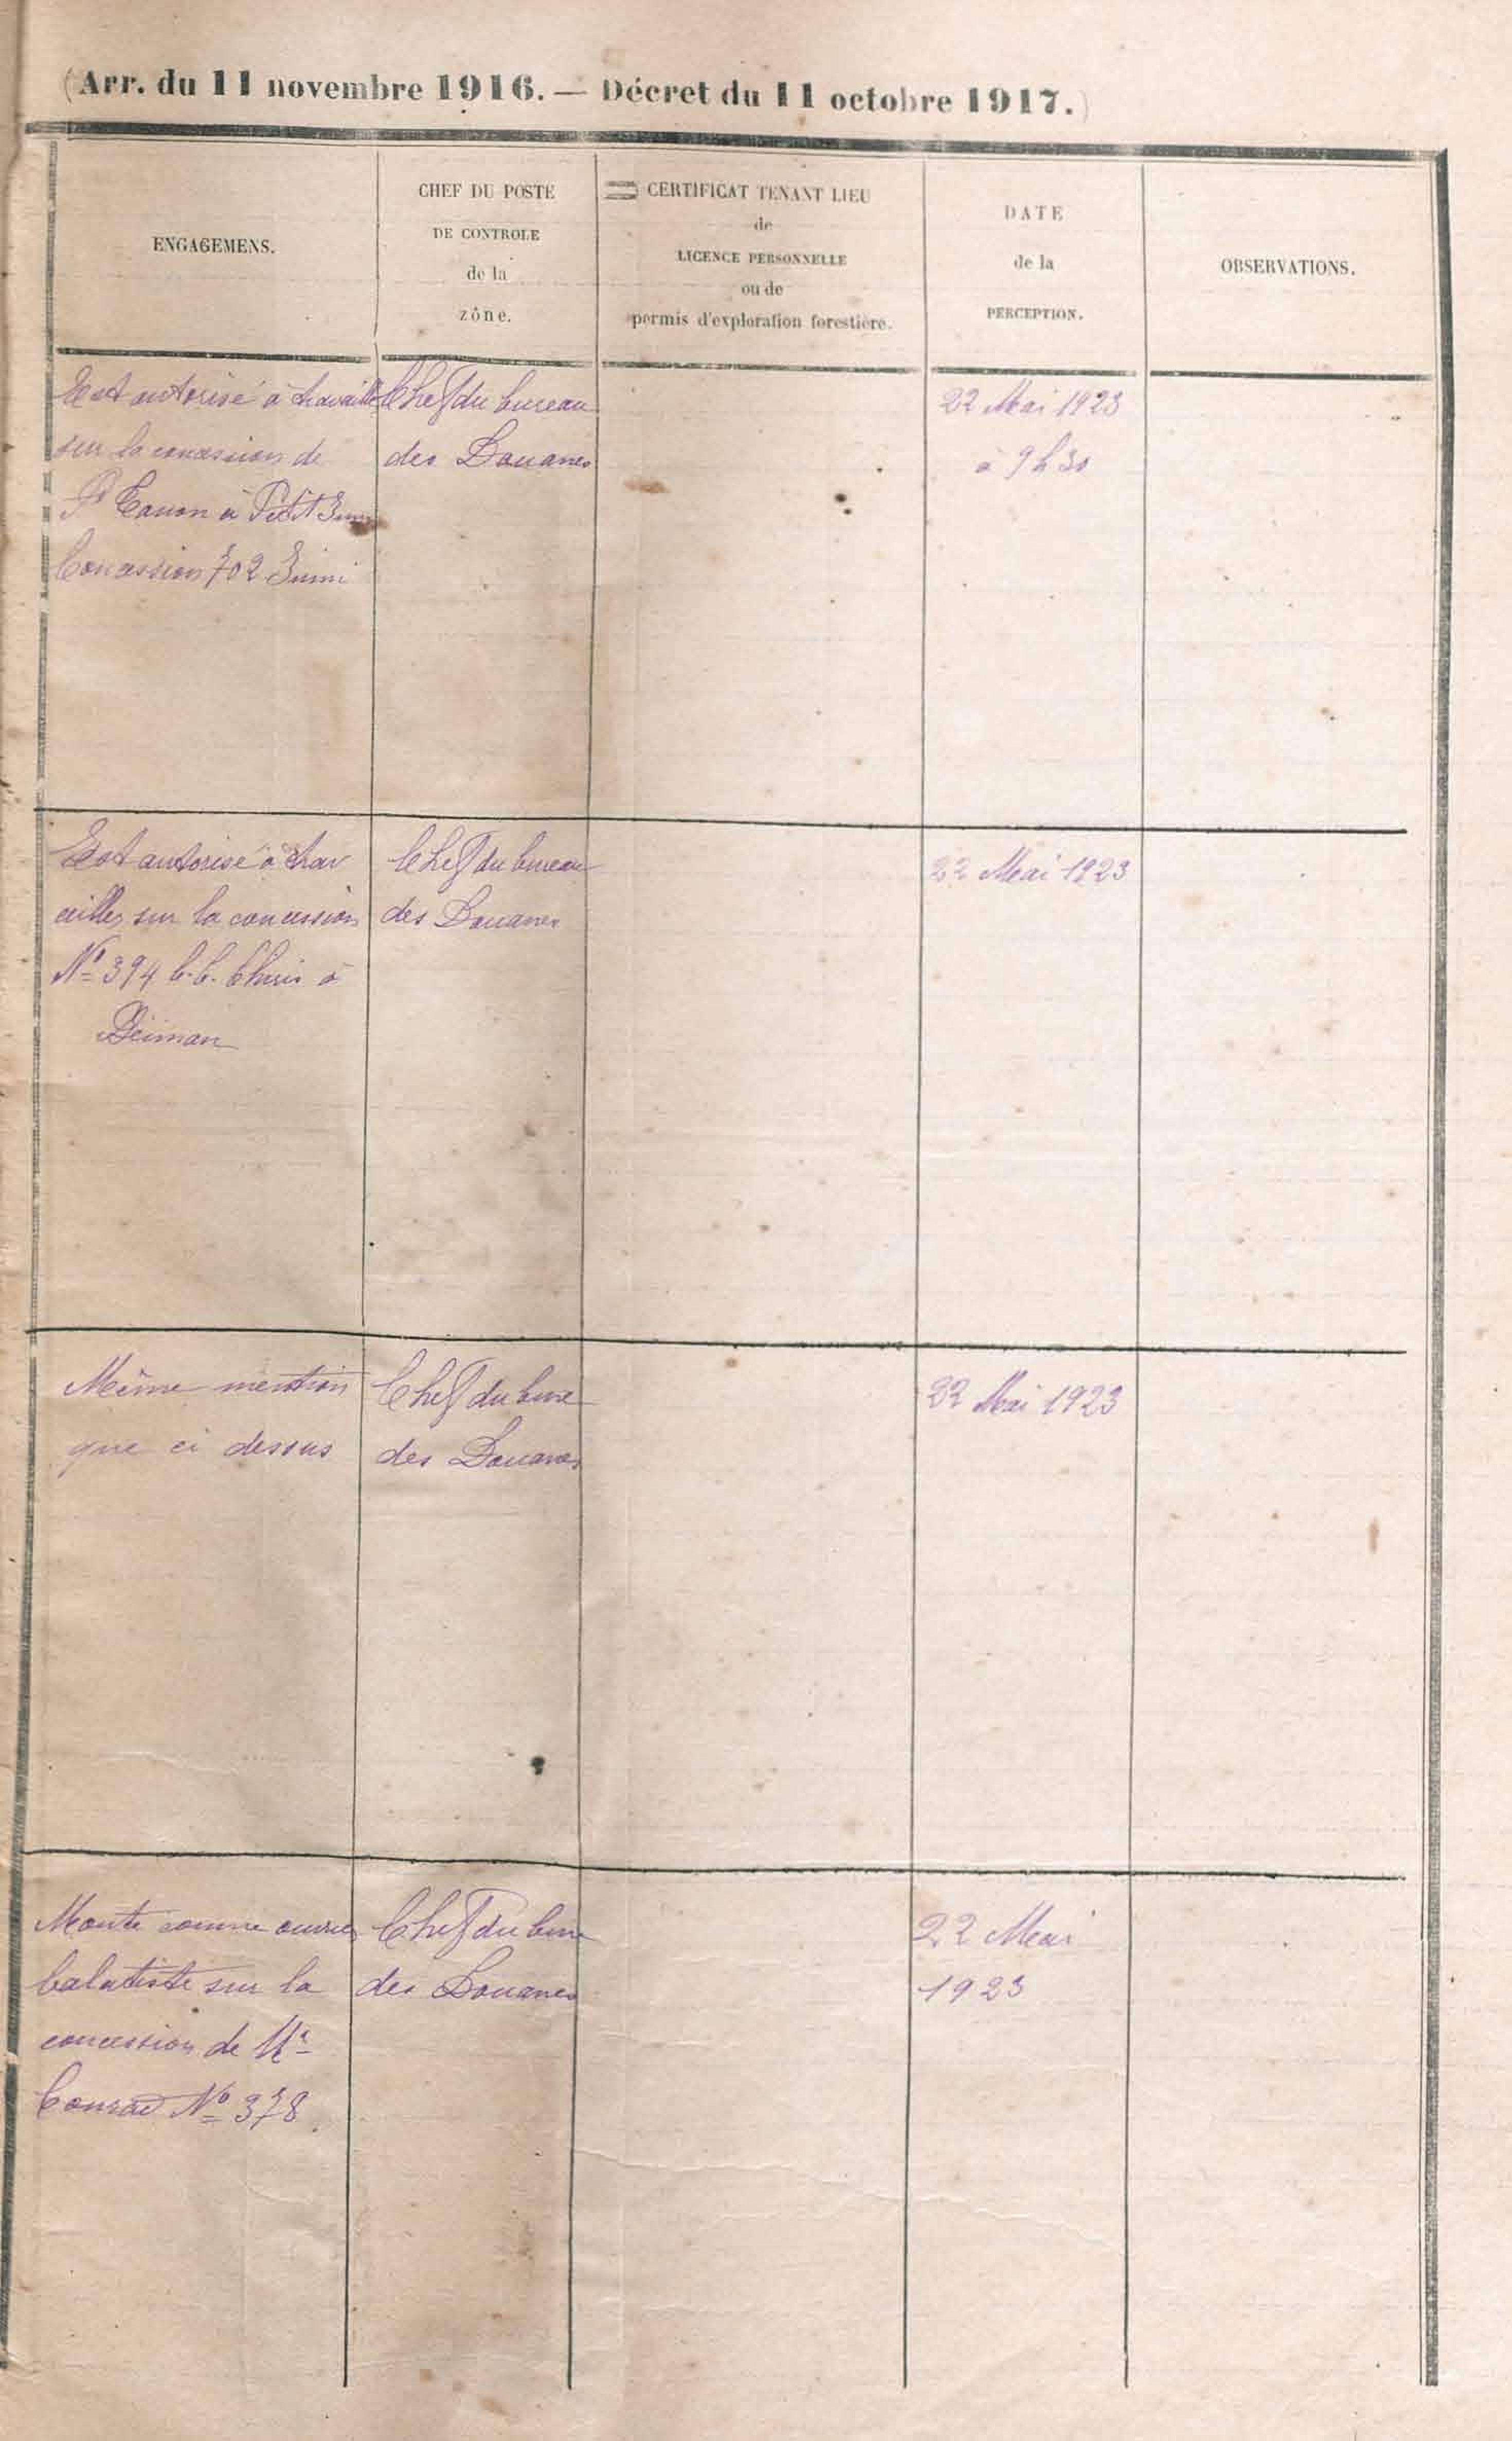 (Arr. du 11 novembre 1916. — Décret du 11 octobre 1917.)
ENGAGEMENS.
CHEF DU POSTE
DE CONTROLE
de la
zône.
CERTIFICAT TENANT LIEU
de
LICENCE PERSONNELLE
ou de
permis d'exploration forestière.
DATE
de la
PERCEPTION.
OBSERVATIONS.
Est autorisé à travailler
sur la concession de
à Petit
Concession 702 Inini
Chef du bureau
des Douanes
22 Mai 1923
à 9h30
Est autorisé à trav
ailler sur la concession
N° 394 C.C. Chris à
Chef du bureau
des Douanes
22 Mai 1923
Même mention
que ci dessus
Chef du bure
des Douanes
22 Mai 1923
Monte comme ouvrier
balatiste sur la
concession de Mr
Conrad N° 378.
Chef du bure
des Douanes
22 Mai
1923